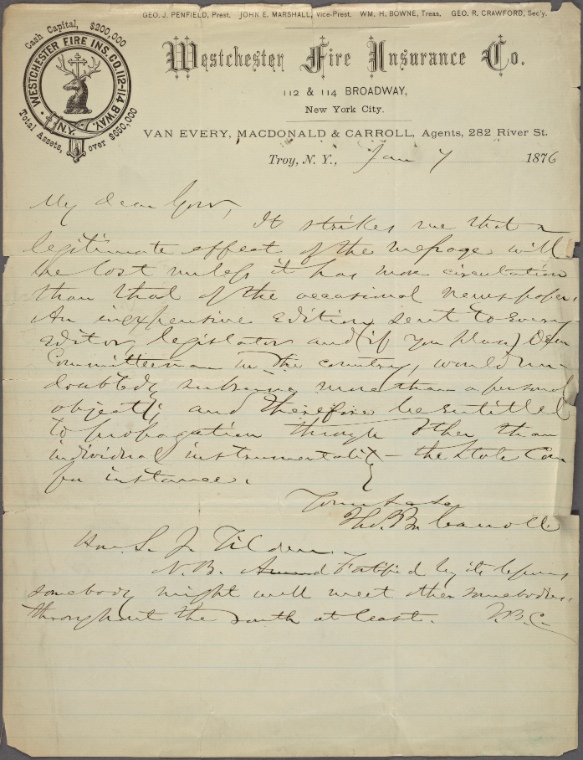 GEO. J. PENFIELD, Prest. JOHN E. MARSHALL, Vice-Prest. WM. H. BOWNE, Treas. GEO. R. CRAWFORD, Sec'y.
Cash Capital, $200,000
WESTCHESTER FIRE INS. CO. 112-114 B'WAY, N.Y.
Total Assets, over $650,000
Westchester Fire Insurance Co.
112 & 114 BROADWAY,
New York City.
VAN EVERY, MACDONALD & CARROLL, Agents, 282 River St.
Troy, N. Y., Jan 7 1876
My dear Gov,
It strikes me that a
legitimate effect of the message will
be lost unless it has more circulation
than that of the occasional newspaper.
An inexpensive edition sent to every
editor, legislator and (if you please) Dem
Committeeman in the country, would un-
doubtedly subserve more than a personal
object; and therefore be entitled
to propagation through other than
individual instrumentality – the State Com
for instance.
Yours
Thos. B. Carroll
Hon. S. J. Tilden
N.B. by its
somebody might well meet other somebodies
throughout the South at least. T.B.C.